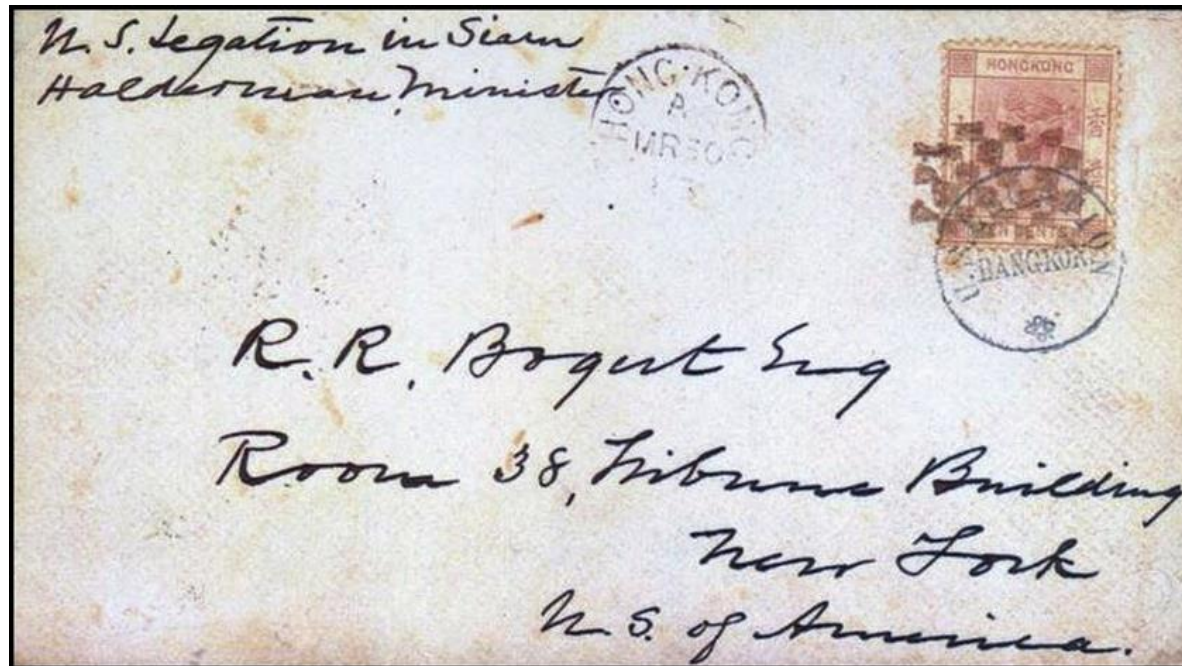 U. S. Legation in Siam
Halderman, Minister
HONG-KONG
A
MR 30
HONGKONG
TEN CENTS
BANGKOK
R. R. Bogert Esq
Room 38, Tribune Building
New York
U. S. of America.